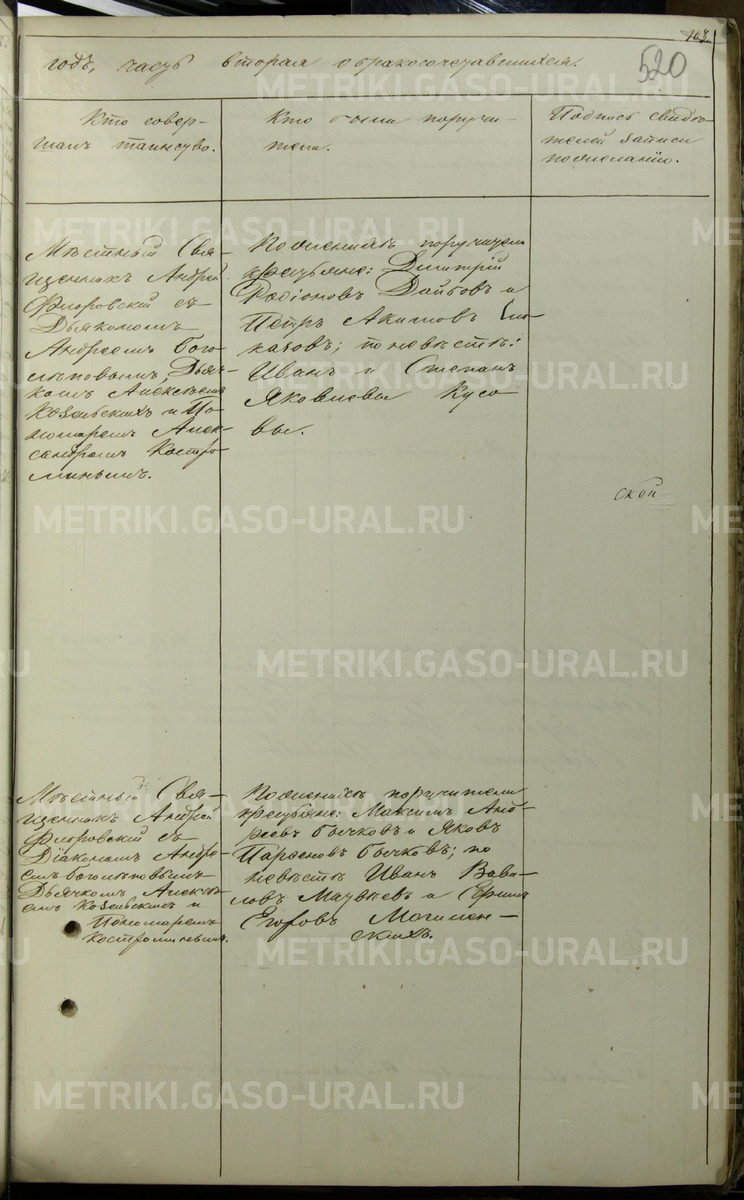 162
520
годъ, часть вторая о бракосочетавшихся.
Кто совер-
шалъ таинство.
Кто были поручи-
тели.
Подпись свидѣ-
телей записи
по желанію.
Мѣстный Свя-
щенникъ Андрей
Флоровскій съ
Дьякономъ
Андреемъ Бого-
лѣповымъ, Дьяч-
комъ Алексѣемъ
Козельскимъ и По-
номаремъ Алек-
сандромъ Костро-
минымъ.
По женихѣ поручители
крестьяне: Димитрій
Родіоновъ Дайбовъ и
Петръ Акимовъ
по невѣстѣ:
Иванъ и Степанъ
Яковлевы Кусо-
вы.
ской
Мѣстный Свя-
щенникъ Андрей
Флоровскій съ
Діакономъ Андре-
емъ Боголѣповымъ
Дьячкомъ Алексѣ-
емъ Козельскимъ и
Пономаремъ
Костроминымъ.
По женихѣ поручители
крестьяне: Максимъ Анд-
реевъ Бычковъ и Яковъ
Парѳеновъ Бычковъ; по
невѣстѣ Иванъ Вави-
ловъ Матвѣевъ и
Егоровъ Могилен-
скихъ.
METRIKI.GASO-URAL.RU